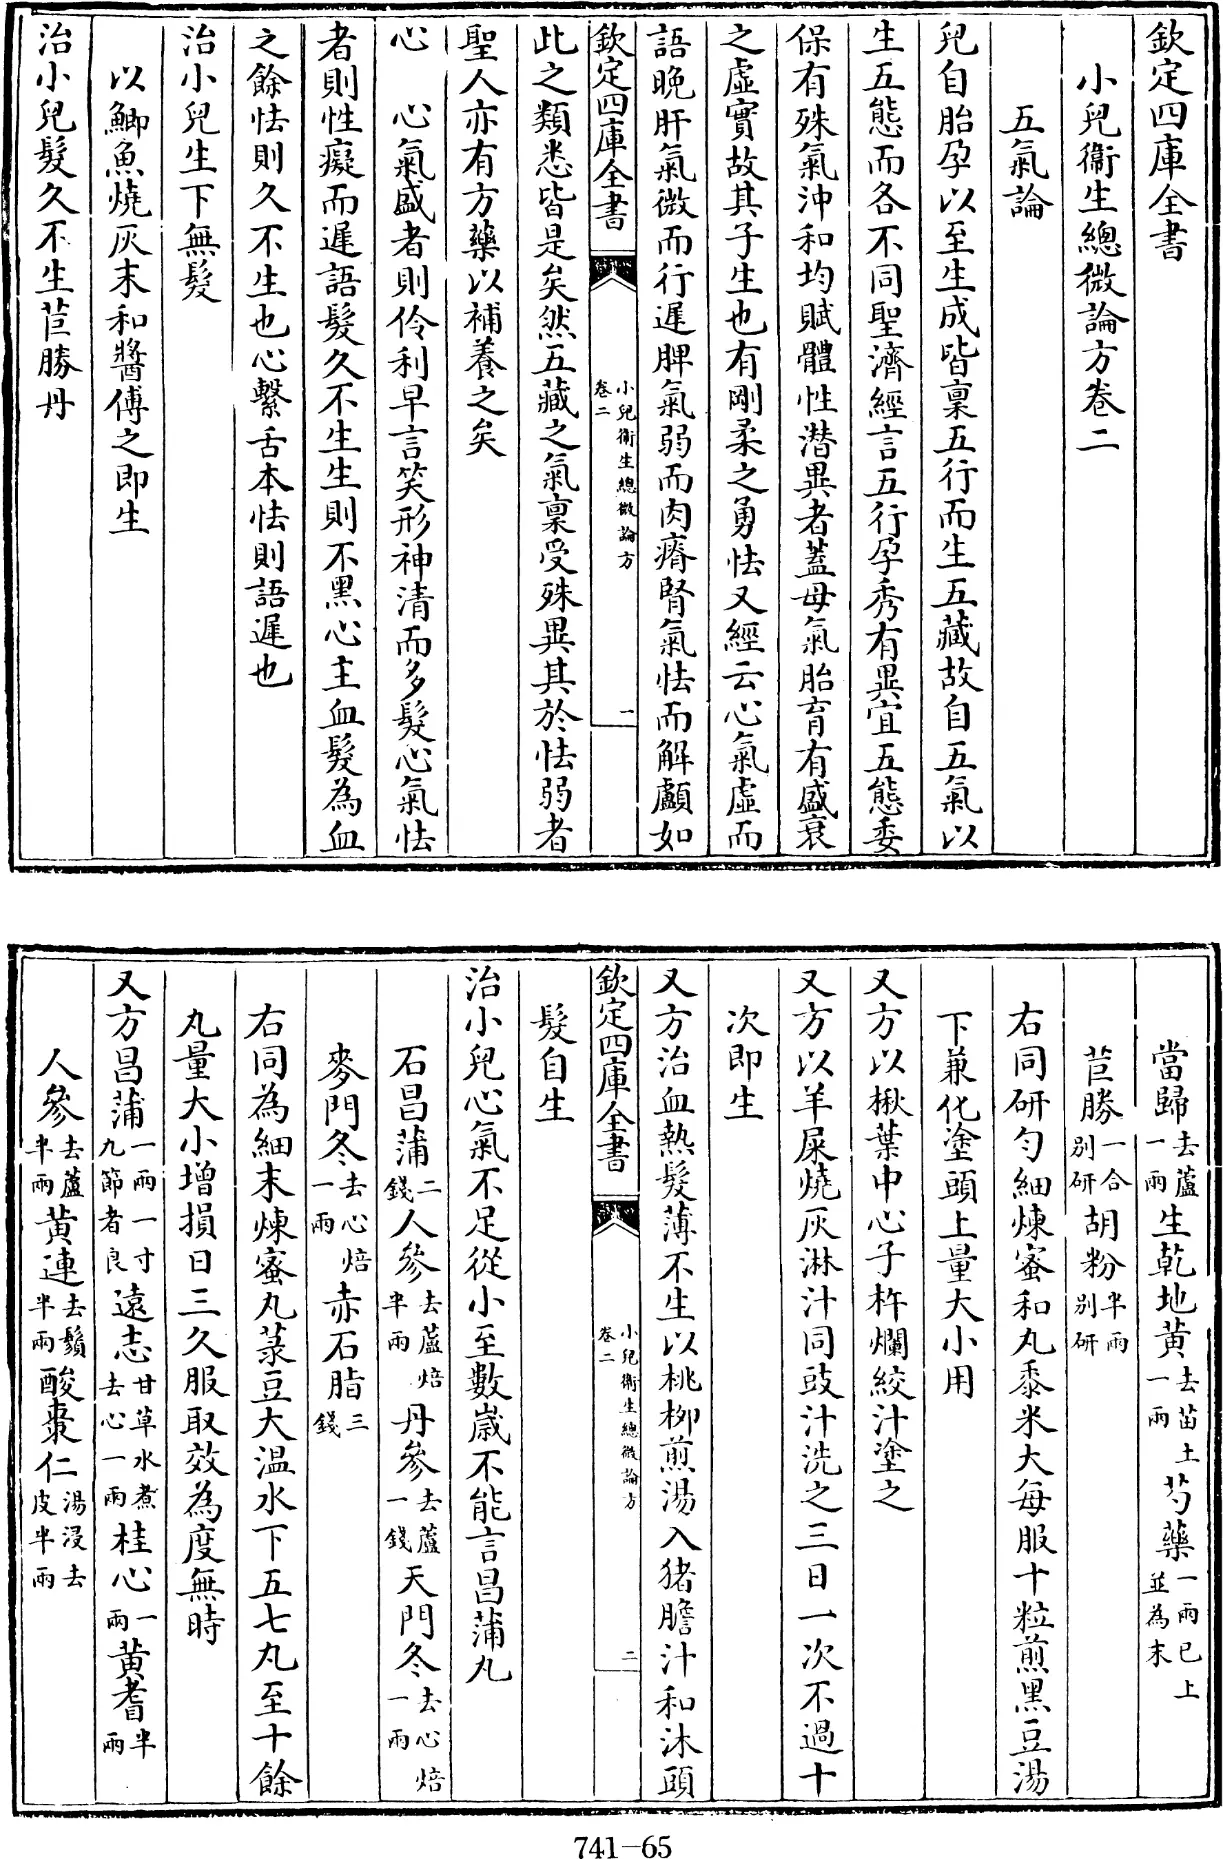 欽定四庫全書
小兒衞生總微論方卷二
五氣論
兒自胎孕以至生成皆稟五行而生五藏故自五氣以
生五態而各不同聖濟經言五行孕秀有異宜五態委
保有殊氣沖和均賦體性潛異者蓋母氣胎育有盛衰
之虛實故其子生也有剛柔之勇怯又經云心氣虛而
語晚肝氣微而行遲脾氣弱而肉瘠腎氣怯而解顱如
欽定四庫全書
小兒衛生總微論方
卷二
一
此之類悉皆是矣然五藏之氣稟受殊異其於怯弱者
聖人亦有方藥以補養之矣
心 心氣盛者則伶利早言笑形神清而多髮心氣怯
者則性癡而遲語髮久不生生則不黑心主血髮為血
之餘怯則久不生也心繫舌本怯則語遲也
治小兒生下無髮
以鯽魚燒灰末和醬傅之即生
治小兒髮久不生苣勝丹
當歸去蘆一兩生乾地黃去苗土一兩芍藥一兩已上並為末
苣勝一合別研胡粉半兩別研
右同研勻細煉蜜和丸黍米大每服十粒煎黑豆湯
下兼化塗頭上量大小用
又方以楸葉中心子杵爛絞汁塗之
又方以羊屎燒灰淋汁同豉汁洗之三日一次不過十
次即生
又方治血熱髮薄不生以桃柳煎湯入猪膽汁和沐頭
欽定四庫全書
小兒衛生總微論方
卷二
二
髮自生
治小兒心氣不足從小至數歲不能言昌蒲丸
石昌蒲二錢人參去蘆焙半兩丹參去蘆一錢天門冬去心焙一兩
麥門冬去心焙一兩赤石脂三錢
右同為細末煉蜜丸菉豆大温水下五七丸至十餘
丸量大小增損日三久服取效為度無時
又方昌蒲一兩一寸九節者良遠志甘草水煮去心一兩桂心一兩黃耆半兩
人參去蘆半兩黃連去鬚半兩酸棗仁湯浸去皮半兩
741-65